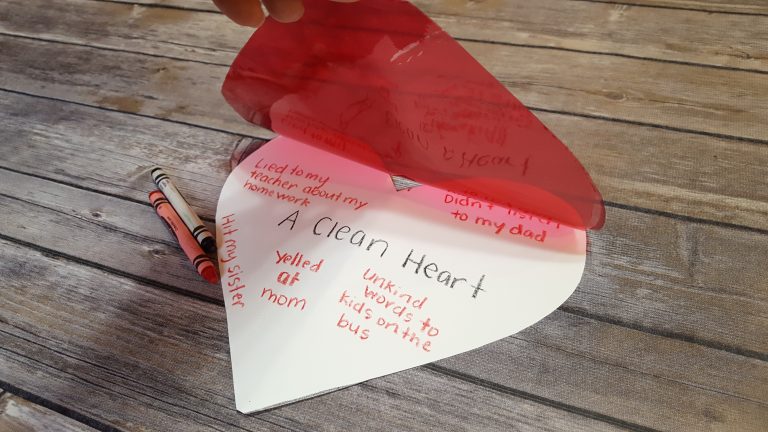 Lied to my
teacher about my
homework
Didn't listen
to my dad
A Clean Heart
Hit my sister
yelled
at
mom
unkind
words to
kids on the
bus